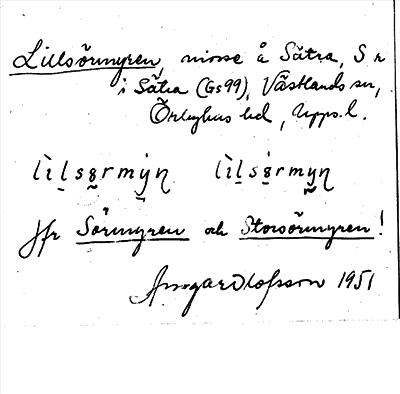 Lillsörmyren, mosse å Sätra, S r
i Sätra (Gs 99), Västlands sn,
Örbyhus hd, Upps. l.
lìl̠sörmẏn lìl̠sörmyn
Jfr Sörmyren och Storsörmyren!
Amgar Olofsson 1951